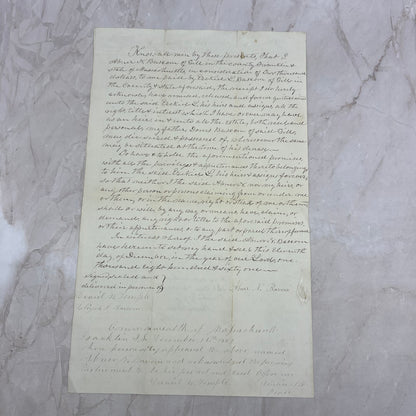 Know all men by these presents, That I
Abner N. Bascom of Gill in the county Franklin &
State of Massachusetts in consideration of One thousand
dollars to me paid by Ezekiel L. Bascom of Gill in
the County & State aforesaid, the receipt I do hereby
acknowledge, have remised, released and forever quitclaimed
unto the said Ezekiel L. his heirs and assigns all the
right, title & interest which I have or may have
as an heir in & unto all the estate, both real and
personal of my father Bascom of said Gill,
now deceased & possessed of, wherever the same
may be situated at the time of his decease.
To have & to hold the aforementioned premises
with all the privileges & appurtenances thereto belonging
to him the said Ezekiel L. his heirs & assigns forever,
so that neither I the said Abner N. nor my heirs or
any other person or persons claiming from or under me
or them, or in the name, right or stead of me or them
shall or will by any way or means have, claim, or
demand, any right or title to the aforesaid premises,
or their appurtenances or to any part or parcel thereof forever.
In witness whereof I the said Abner N. Bascom
have hereunto set my hand & seal this eleventh
day of December in the year of our Lord, one
thousand eight hundred & sixty one
Signed sealed and
delivered in presence of Abner N. Bascom
Daniel W. Temple
Bascom
Commonwealth of Massachusetts
Franklin SS December 1861
Then personally appeared the above named
Abner N. Bascom and acknowledged the above
instrument to be his free act and deed, before me
Daniel W. Temple Justice of
Peace